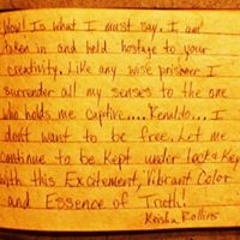 Wow! Is what I must say. I am
taken in and held hostage to your
creativity. Like any wise prisoner I
surrender all my senses to the one
who holds me captive.... Renaldo... I
don't want to be free. Let me
continue to be kept under lock & key
with this Excitement, Vibrant Color
and Essence of Truth!
Keisha Rollins